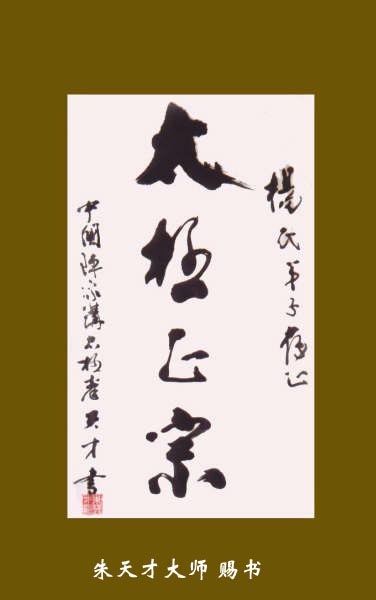 楊氏弟子雅正
太極正宗
中國陳家溝太極拳天才書
朱天才大师 赐书